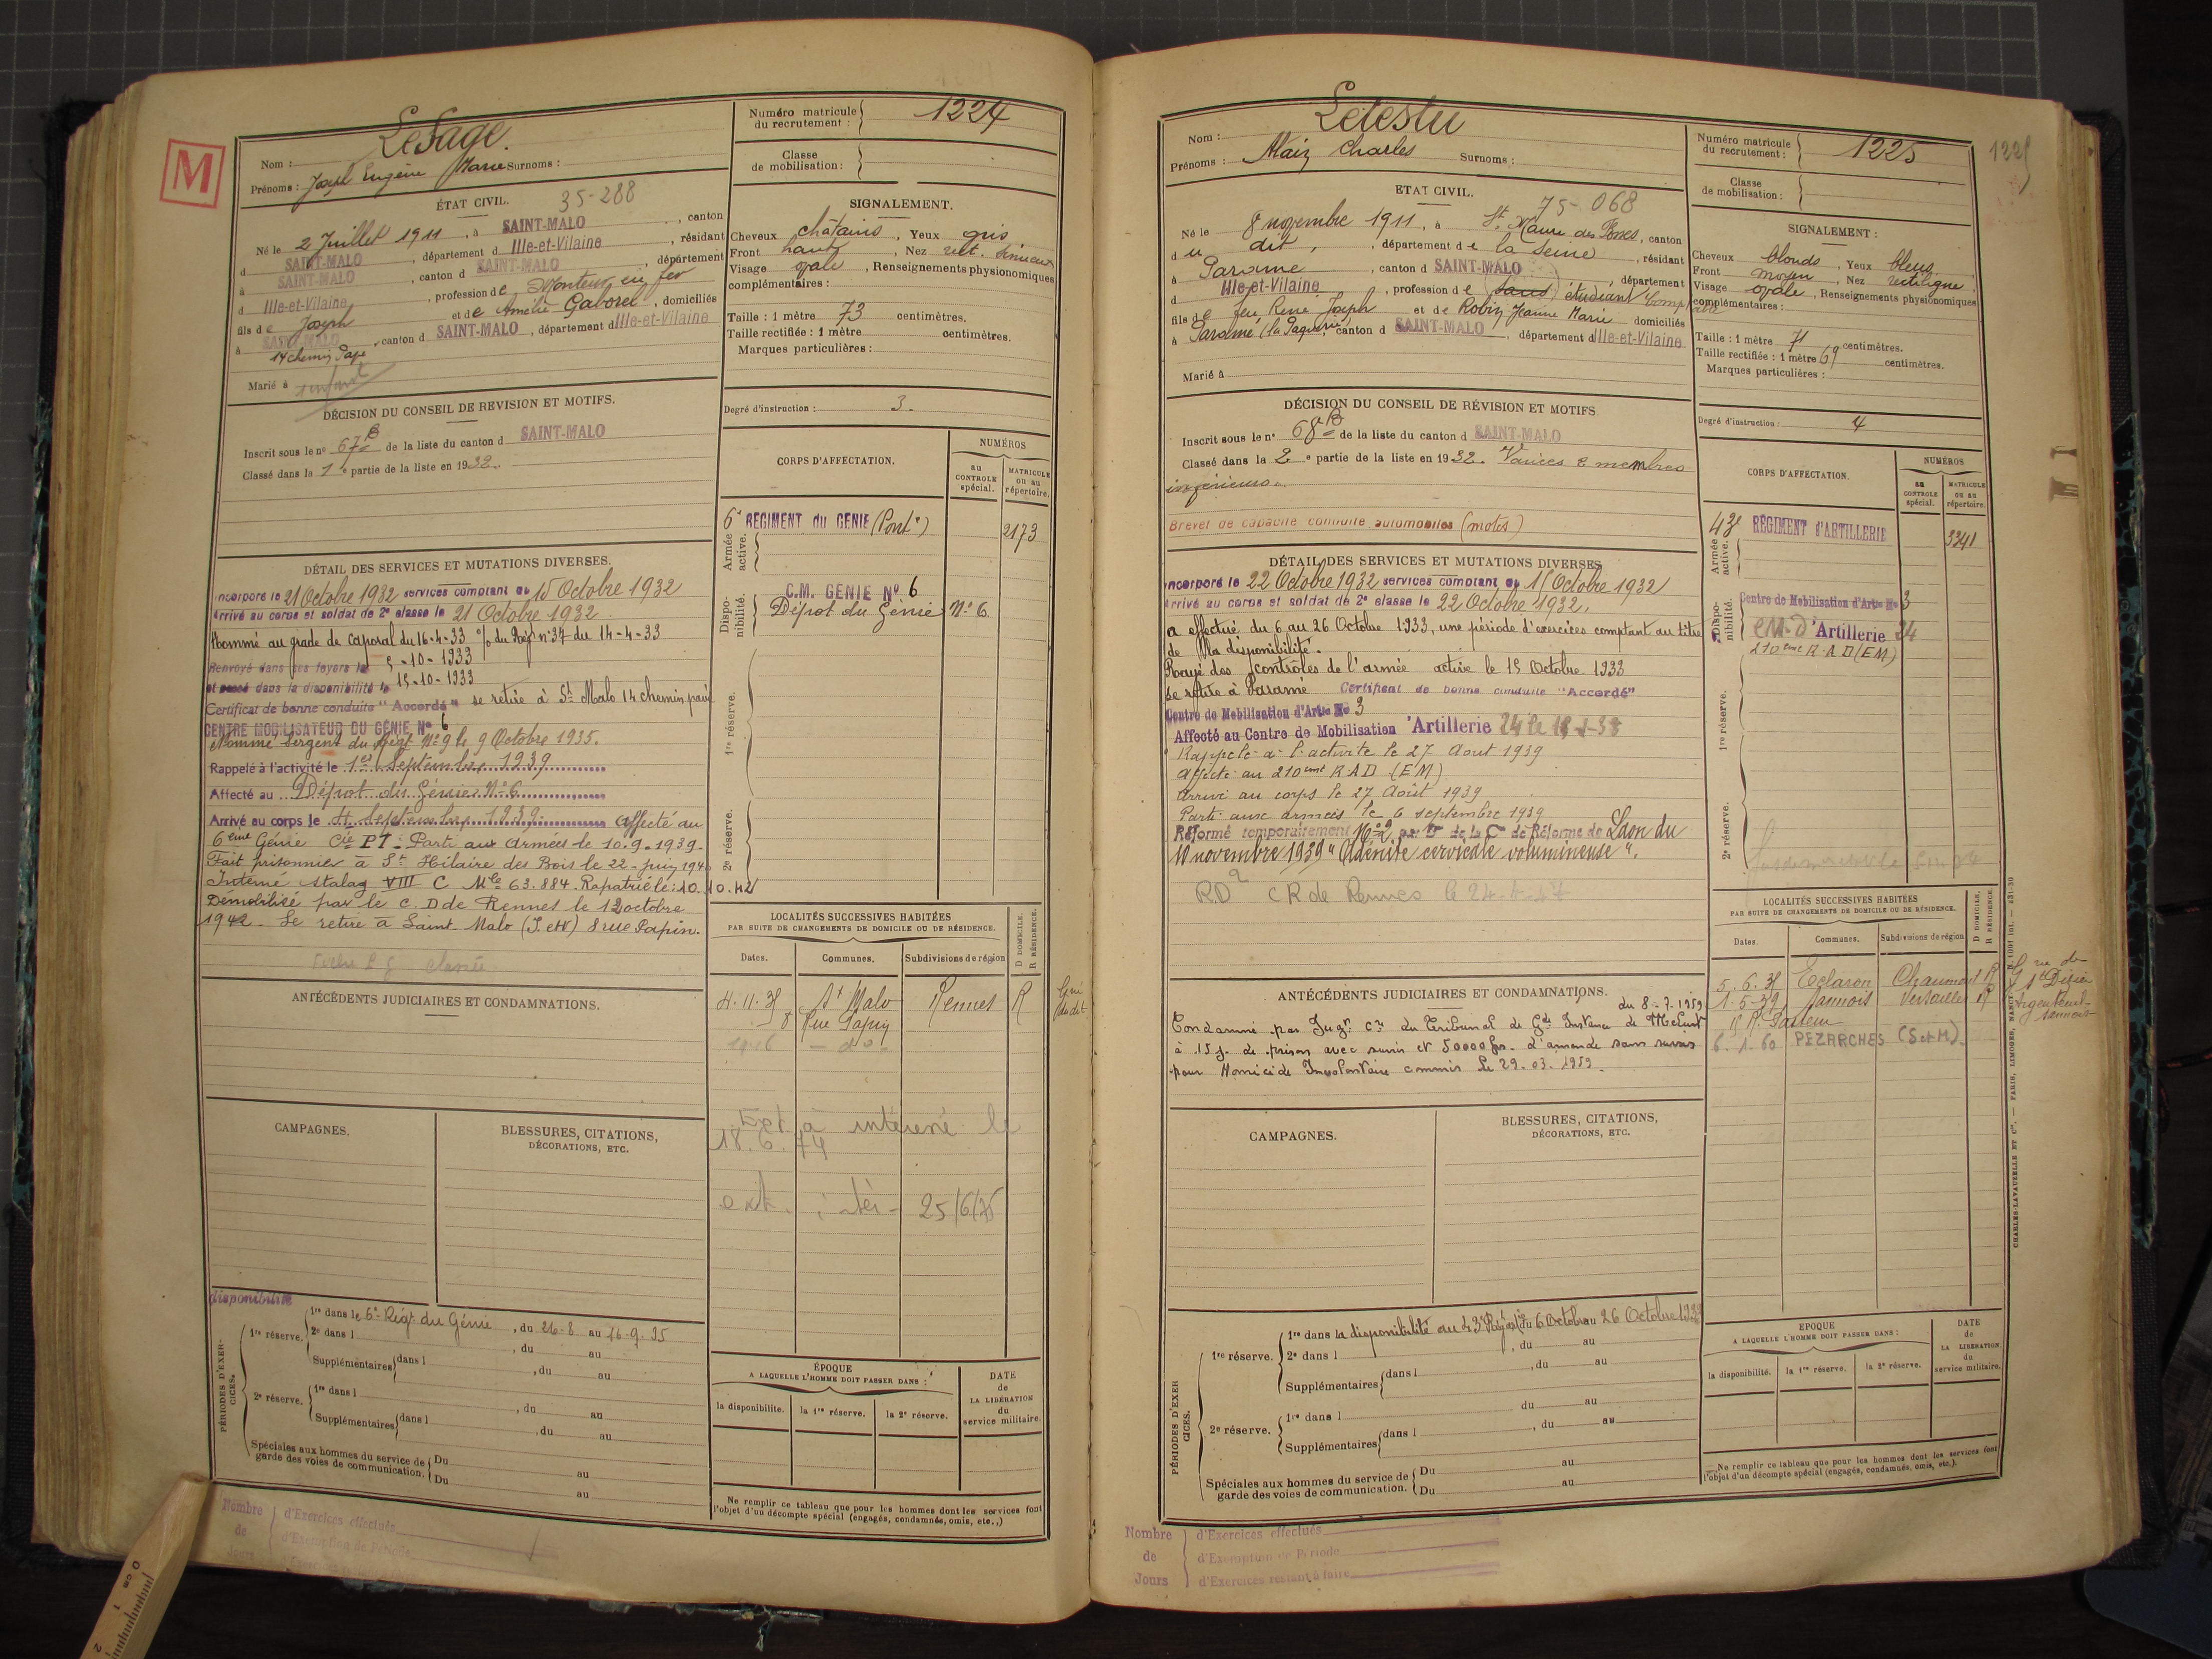 M
Nom : LeSage.
Prénoms : Joseph Eugène Marie Surnoms :
Numéro matricule du recrutement : 1224
Classe de mobilisation :
ÉTAT CIVIL. 35-288
Né le 2 Juillet 1911, à SAINT-MALO, canton
d SAINT-MALO, département d Ille-et-Vilaine, résidant
à SAINT-MALO, canton d SAINT-MALO, département
d Ille-et-Vilaine, profession de Monteur en fer
fils de Joseph et de Amélie Gaborel, domiciliés
à SAINT-MALO, canton d SAINT-MALO, département d Ille-et-Vilaine
14 chemin Pavé
Marié à
SIGNALEMENT.
Cheveux châtains, Yeux gris
Front haut, Nez rect. sinueux
Visage ovale, Renseignements physionomiques
complémentaires :
Taille : 1 mètre 73 centimètres.
Taille rectifiée : 1 mètre centimètres.
Marques particulières :
Degré d'instruction : 3.
DÉCISION DU CONSEIL DE REVISION ET MOTIFS.
Inscrit sous le nº 67 B de la liste du canton d SAINT-MALO
Classé dans la 1e partie de la liste en 1932.
CORPS D'AFFECTATION.
NUMÉROS
au CONTROLE spécial.
MATRICULE ou au répertoire.
Armée active.
6e REGIMENT du GENIE (Pont) 2173
Disponibilité.
C.M. GENIE Nº 6
Dépot du Génie Nº 6.
1re réserve.
2e réserve.
DÉTAIL DES SERVICES ET MUTATIONS DIVERSES.
Incorporé le 21 Octobre 1932 services comptant du 15 Octobre 1932
Arrivé au corps et soldat de 2e classe le 21 Octobre 1932
Nommé au grade de Caporal du 16-4-33 % du Rég nº 37 du 14-4-33
Renvoyé dans ses foyers le 5-10-1933
et passé dans la disponibilité le 15-10-1933
Certificat de bonne conduite "Accordé" se retire à St Malo 14 chemin pavé
CENTRE MOBILISATEUR DU GÉNIE Nº 6
Nommé Sergent du Régt Nº 9 le 9 Octobre 1935.
Rappelé à l'activité le 1er Septembre 1939
Affecté au Dépot du Génie Nº 6
Arrivé au corps le 4 Septembre 1939. Affecté au
6ème Génie Cie PT - Parti aux armées le 10.9.1939.
Fait prisonnier à St Hilaire des Bois le 22 Juin 1940
Interné stalag VIII C Mle 63.884. Rapatrié le : 10.10.42
Démobilisé par le C.D de Rennes le 12 octobre
1942. Se retire à Saint-Malo (I. et V) 8 rue Papin.
LOCALITÉS SUCCESSIVES HABITÉES
PAR SUITE DE CHANGEMENTS DE DOMICILE OU DE RÉSIDENCE.
D DOMICILE.
R RÉSIDENCE.
Dates. Communes. Subdivisions de région
4.11.38 St Malo Rennes R
8 Rue Papin
ANTÉCÉDENTS JUDICIAIRES ET CONDAMNATIONS.
CAMPAGNES.
BLESSURES, CITATIONS,
DÉCORATIONS, ETC.
Ext à intéressé le
18.6.74
ext. 25/6/75
disponibilité
PÉRIODES D'EXERCICES.
1re réserve. 1re dans le 6e Régt du Génie, du 26-8 au 16-9-35
2e dans l , du au
Supplémentaires dans l , du au
2e réserve. 1re dans l , du au
Supplémentaires dans l , du au
Spéciales aux hommes du service de garde des voies de communication. Du au
Du au
ÉPOQUE
A LAQUELLE L'HOMME DOIT PASSER DANS :
la disponibilité. la 1re réserve. la 2e réserve.
DATE de LA LIBÉRATION du service militaire.
Ne remplir ce tableau que pour les hommes dont les services font
l'objet d'un décompte spécial (engagés, condamnés, omis, etc.,)
Nombre de Jours
d'Exercices effectués
d'Exemption de Période
Nom : Letestu
Prénoms : Alain Charles Surnoms :
Numéro matricule du recrutement : 1225
1225
Classe de mobilisation :
ETAT CIVIL. 75-068
Né le 8 novembre 1911, à St. Maure des Fossés, canton
du dit, département de la Seine, résidant
à Paramé, canton d SAINT-MALO, département
d Ille-et-Vilaine, profession de sans étudiant
fils de feu René Joseph et de Robin Jeanne Marie domiciliés
à Paramé, canton d SAINT-MALO, département d Ille-et-Vilaine
Marié à
SIGNALEMENT :
Cheveux blonds, Yeux bleus
Front moyen, Nez rectiligne
Visage ovale, Renseignements physionomiques
complémentaires :
Taille : 1 mètre 71 centimètres.
Taille rectifiée : 1 mètre 69 centimètres.
Marques particulières :
Degré d'instruction : 4
DÉCISION DU CONSEIL DE RÉVISION ET MOTIFS
Inscrit sous le nº 68 B de la liste du canton d SAINT-MALO
Classé dans la 2e partie de la liste en 1932. Varices 2 membres
inférieurs.
Brevet de capacité conduite automobiles (motos)
CORPS D'AFFECTATION.
NUMÉROS
au CONTROLE spécial.
MATRICULE ou au répertoire.
Armée active.
43e RÉGIMENT d'ARTILLERIE 3341
Disponibilité.
Centre de Mobilisation d'Artie Nº 3
CM d'Artillerie 24
210ème R.A.D (EM)
1re réserve.
2e réserve.
DÉTAIL DES SERVICES ET MUTATIONS DIVERSES
Incorporé le 22 Octobre 1932 services comptant du 15 Octobre 1932
Arrivé au corps et soldat de 2e classe le 22 Octobre 1932.
a effectué du 6 au 26 Octobre 1933, une période d'exercices comptant au titre
de la disponibilité.
Rayé des contrôles de l'armée active le 15 Octobre 1933
se retire à Paramé Certificat de bonne conduite "Accordé"
Centre de Mobilisation d'Artie Nº 3
Affecté au Centre de Mobilisation d'Artillerie 24 le
Rappelé à l'activité le 27 Août 1939
Affecté au 210ème R.A.D (EM)
Arrivé au corps le 27 Août 1939
Parti aux armées le 6 septembre 1939
Réformé temporairement Nº 2 par de la Con de Réforme de Laon du
10 novembre 1939 "Adénite cervicale volumineuse".
RD 2 CR de Rennes le
LOCALITÉS SUCCESSIVES HABITÉES
PAR SUITE DE CHANGEMENTS DE DOMICILE OU DE RÉSIDENCE.
D DOMICILE.
R RÉSIDENCE.
Dates. Communes. Subdivisions de région
5.6.38 Eclaron Chaumont R
1.5.39 Sannois Versailles R
R. Pasteur
6.1.60 PEZARCHES (S et M).
rue de
St Dizier
Argenteuil
Sannois
ANTÉCÉDENTS JUDICIAIRES ET CONDAMNATIONS.
du 8-7-1959
Condamné par Jugt. Cel du Tribunal de Gde Instance de Melun
à 15 j. de prison avec sursis et 50000 frs d'amende sans sursis
pour Homicide Involontaire commis le 29.03.1959.
CAMPAGNES.
BLESSURES, CITATIONS,
DÉCORATIONS, ETC.
PÉRIODES D'EXERCICES.
1re réserve. 1re dans la disponibilité au 43e Rég. du 6 Octobre au 26 Octobre 1933
2e dans l , du au
Supplémentaires dans l , du au
2e réserve. 1re dans l du au
Supplémentaires dans l , du au
Spéciales aux hommes du service de garde des voies de communication. Du au
Du au
EPOQUE
A LAQUELLE L'HOMME DOIT PASSER DANS :
la disponibilité. la 1re réserve. la 2e réserve.
DATE de LA LIBÉRATION du service militaire.
Ne remplir ce tableau que pour les hommes dont les services font
l'objet d'un décompte spécial (engagés, condamnés, omis, etc.).
CHARLES-LAVAUZELLE ET Cie. — PARIS, LIMOGES, NANCY
Nombre de Jours
d'Exercices effectués
d'Exemption de Période
d'Exercices restant à faire
0 cm 1 2